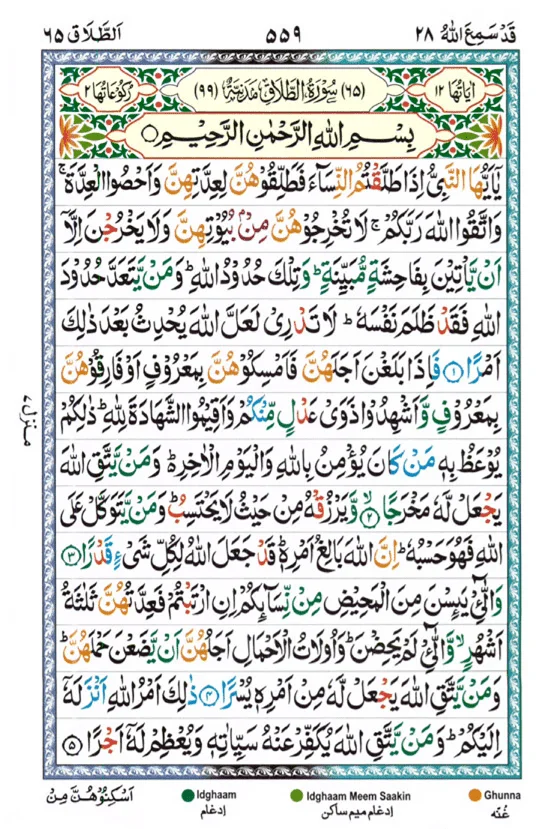 قَدْ سَمِعَ اللّٰهُ ٢٨ ٥٥٩ اَلطَّلَاق ٦٥
اٰيَاتُهَا ١٢ (٦٥) سُوْرَةُ الطَّلَاقِ مَدَنِيَّةٌ (٩٩) رُكُوْعَاتُهَا ٢
بِسْمِ اللّٰهِ الرَّحْمٰنِ الرَّحِيْمِ
يٰۤاَيُّهَا النَّبِيُّ اِذَا طَلَّقْتُمُ النِّسَآءَ فَطَلِّقُوْهُنَّ لِعِدَّتِهِنَّ وَاَحْصُوا الْعِدَّةَ ۚ
وَاتَّقُوا اللّٰهَ رَبَّكُمْ ۚ لَا تُخْرِجُوْهُنَّ مِنْۢ بُيُوْتِهِنَّ وَلَا يَخْرُجْنَ اِلَّاۤ
اَنْ يَّاْتِيْنَ بِفَاحِشَةٍ مُّبَيِّنَةٍ ؕ وَتِلْكَ حُدُوْدُ اللّٰهِ ؕ وَمَنْ يَّتَعَدَّ حُدُوْدَ
اللّٰهِ فَقَدْ ظَلَمَ نَفْسَهٗ ؕ لَا تَدْرِىْ لَعَلَّ اللّٰهَ يُحْدِثُ بَعْدَ ذٰلِكَ
اَمْرًا ۝١ فَاِذَا بَلَغْنَ اَجَلَهُنَّ فَاَمْسِكُوْهُنَّ بِمَعْرُوْفٍ اَوْ فَارِقُوْهُنَّ
بِمَعْرُوْفٍ وَّاَشْهِدُوْا ذَوَىْ عَدْلٍ مِّنْكُمْ وَاَقِيْمُوا الشَّهَادَةَ لِلّٰهِ ؕ ذٰلِكُمْ
يُوْعَظُ بِهٖ مَنْ كَانَ يُؤْمِنُ بِاللّٰهِ وَالْيَوْمِ الْاٰخِرِ ؕ وَمَنْ يَّتَّقِ اللّٰهَ
يَجْعَلْ لَّهٗ مَخْرَجًا ۙ۝٢ وَّيَرْزُقْهُ مِنْ حَيْثُ لَا يَحْتَسِبُ ؕ وَمَنْ يَّتَوَكَّلْ عَلَى
اللّٰهِ فَهُوَ حَسْبُهٗ ؕ اِنَّ اللّٰهَ بَالِغُ اَمْرِهٖ ؕ قَدْ جَعَلَ اللّٰهُ لِكُلِّ شَىْءٍ قَدْرًا ۝٣
وَالّٰٓـِٔىْ يَئِسْنَ مِنَ الْمَحِيْضِ مِنْ نِّسَآئِكُمْ اِنِ ارْتَبْتُمْ فَعِدَّتُهُنَّ ثَلٰثَةُ
اَشْهُرٍ ۙ وَّالّٰٓـِٔىْ لَمْ يَحِضْنَ ؕ وَاُولَاتُ الْاَحْمَالِ اَجَلُهُنَّ اَنْ يَّضَعْنَ حَمْلَهُنَّ ؕ
وَمَنْ يَّتَّقِ اللّٰهَ يَجْعَلْ لَّهٗ مِنْ اَمْرِهٖ يُسْرًا ۝٤ ذٰلِكَ اَمْرُ اللّٰهِ اَنْزَلَهٗۤ
اِلَيْكُمْ ؕ وَمَنْ يَّتَّقِ اللّٰهَ يُكَفِّرْ عَنْهُ سَيِّاٰتِهٖ وَيُعْظِمْ لَهٗۤ اَجْرًا ۝٥
منزل ٧
اَسْكِنُوْهُنَّ مِنْ
Idghaam
اِدغام
Idghaam Meem Saakin
اِدغام میم ساکن
Ghunna
غُنّه